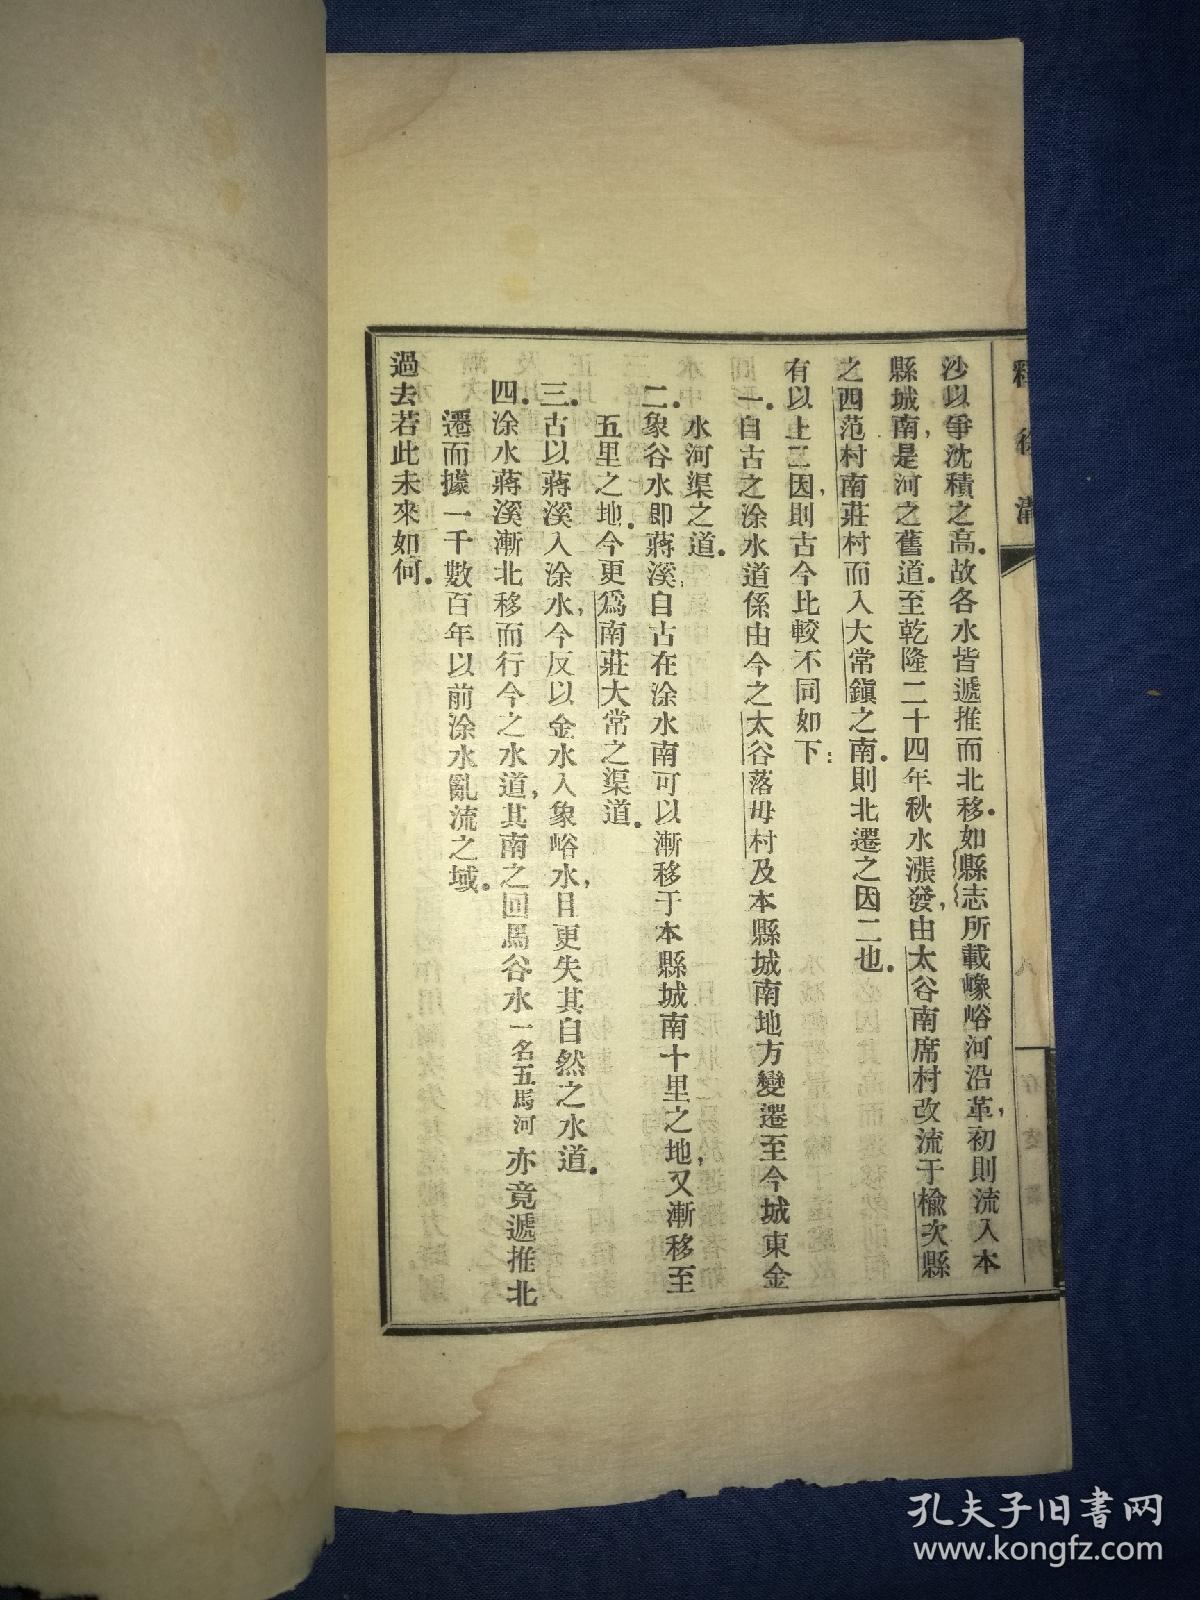 沙以爭沈積之高．故各水皆遞推而北移．如縣志所載㠔峪河沿革，初則流入本
縣城南，是河之舊道．至乾隆二十四年秋水漲發，由太谷南席村改流于楡次縣
之西范村南莊村而入大常鎭之南．則北遷之因二也．
有以上三因，則古今比較不同如下：
一．自古之涂水道係由今之太谷落毋村及本縣城南地方變遷至今城東金
水河渠之道．
二．象谷水即蔣溪，自古在涂水南可以漸移于本縣城南十里之地，又漸移至
五里之地．今更爲南莊大常之渠道．
三．古以蔣溪入涂水，今反以金水入象峪水，且更失其自然之水道．
四．涂水蔣溪漸北移而行今之水道，其南之回馬谷水一名五馬河亦竟遞推北
遷而據一千數百年以前涂水亂流之域．
過去若此未來如何．
八
孔夫子旧书网
www.kongfz.com